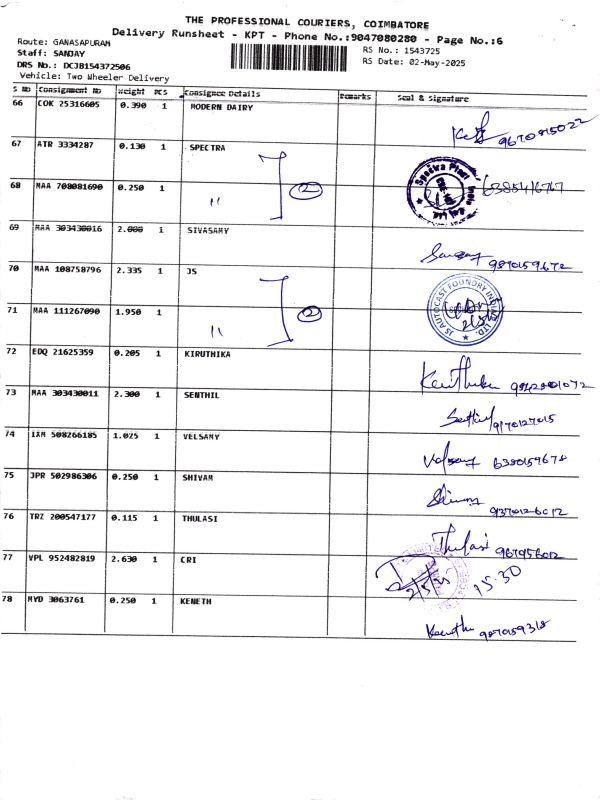 THE PROFESSIONAL COURIERS, COIMBATORE
Delivery Runsheet - KPT - Phone No.:9047080280 - Page No.:6
Route: GANASAPURAM
RS No.: 1543725
Staff: SANJAY
RS Date: 02-May-2025
DRS No.: DCJB154372506
Vehicle: Two Wheeler Delivery
S No Consignment No Weight PCS Consignee Details Remarks Seal & Signature
66 COK 25316605 0.390 1 MODERN DAIRY
67 ATR 3334287 0.130 1 SPECTRA
68 MAA 708081690 0.250 1 " 2
69 MAA 303430016 2.000 1 SIVASAMY
9870159672
70 MAA 108758796 2.335 1 JS
JS AUTOCAST FOUNDRY INDIA LTD.
71 MAA 111267090 1.950 1 " 2
72 EDQ 21625359 0.205 1 KIRUTHIKA
73 MAA 303430011 2.300 1 SENTHIL
9170127015
74 IXM 508266185 1.025 1 VELSAMY
6380159678
75 JPR 502986306 0.250 1 SHIVAM
9370126012
76 TRZ 200547177 0.115 1 THULASI
Thulasi
77 VPL 952482819 2.630 1 CRI
2/5/25 15.30
78 MYD 3063761 0.250 1 KENETH